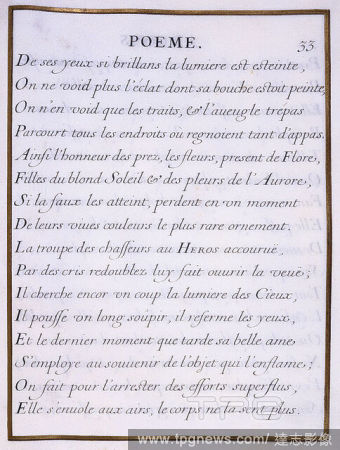 POEME. 33
De ses yeux si brillans la lumiere est esteinte,
On ne void plus l'éclat dont sa bouche estoit peinte,
On n'en void que les traits, & l'aueugle trépas
Parcourt tous les endroits où regnoient tant d'appas.
Ainsi l'honneur des prez, les fleurs, present de Flore,
Filles du blond Soleil & des pleurs de l'Aurore,
Si la faux les atteint, perdent en vn moment
De leurs viues couleurs le plus rare ornement.
La troupe des chasseurs au HEROS accouruë,
Par des cris redoublez luy fait ouurir la veuë;
Il cherche encor vn coup la lumiere des Cieux,
Il pousse vn long soupir, il referme les yeux,
Et le dernier moment que tarde sa belle ame
S'employe au souuenir de l'objet qui l'enflame;
On fait pour l'arrester des efforts superflus,
Elle s'enuole aux airs, le corps ne la sent plus.
TPG
www.tpgnews.com/達志影像